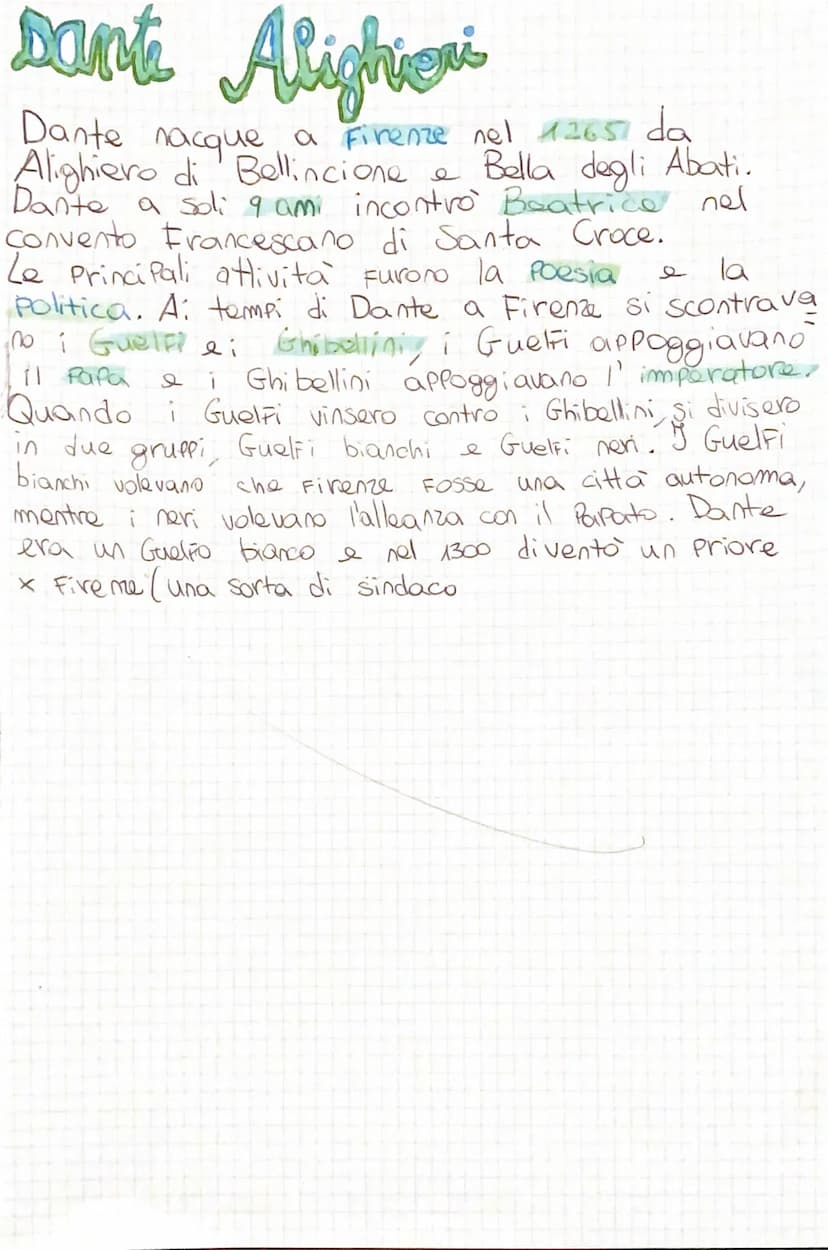 Dante Alighieri
Dante nacque a Firenze nel 1265 da
Alighiero di Bellincione e Bella degli Abati.
Dante a soli 9 anni incontrò Beatrice nel
convento Francescano di Santa Croce.
Le principali attività furono la poesia e la
politica. Ai tempi di Dante a Firenze si scontrava
no i Guelfi e i Ghibellini, i Guelfi appoggiavano
il Papa e i Ghibellini appoggiavano l'imperatore.
Quando i Guelfi vinsero contro i Ghibellini, si divisero
in due gruppi, Guelfi bianchi e Guelfi neri. I Guelfi
bianchi volevano che Firenze fosse una città autonoma,
mentre i neri volevano l'alleanza con il Papato. Dante
era un Guelfo bianco e nel 1300 diventò un priore
x Firenze (una sorta di sindaco